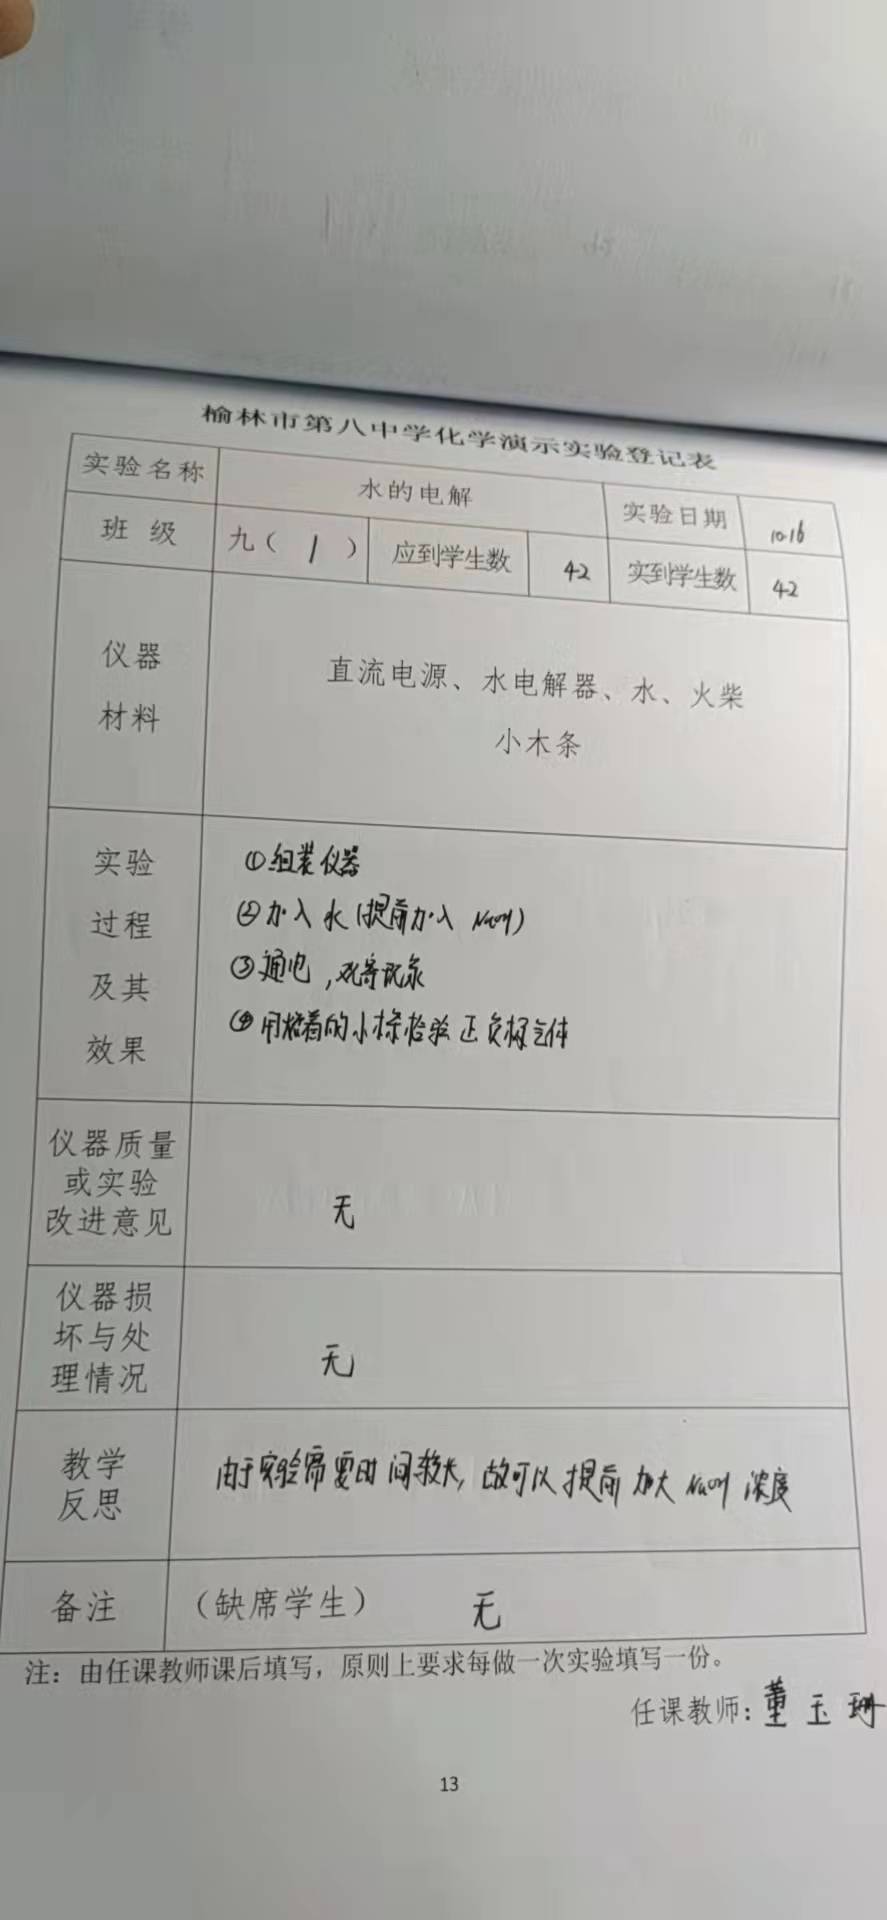 榆林市第八中学化学演示实验登记表
实验名称 水的电解 实验日期 10.16
班 级 九（ 1 ） 应到学生数 42 实到学生数 42
仪器
材料
直流电源、水电解器、水、火柴
小木条
实验
过程
及其
效果
①组装仪器
②加入水(提前加入 NaOH)
③通电,观察现象
④用燃着的小木条检验正负极气体
仪器质量
或实验
改进意见
无
仪器损
坏与处
理情况
无
教学
反思
由于实验需要时间较长,故可以提前加大 NaOH 浓度
备注 （缺席学生） 无
注：由任课教师课后填写，原则上要求每做一次实验填写一份。
任课教师：董玉珊
13